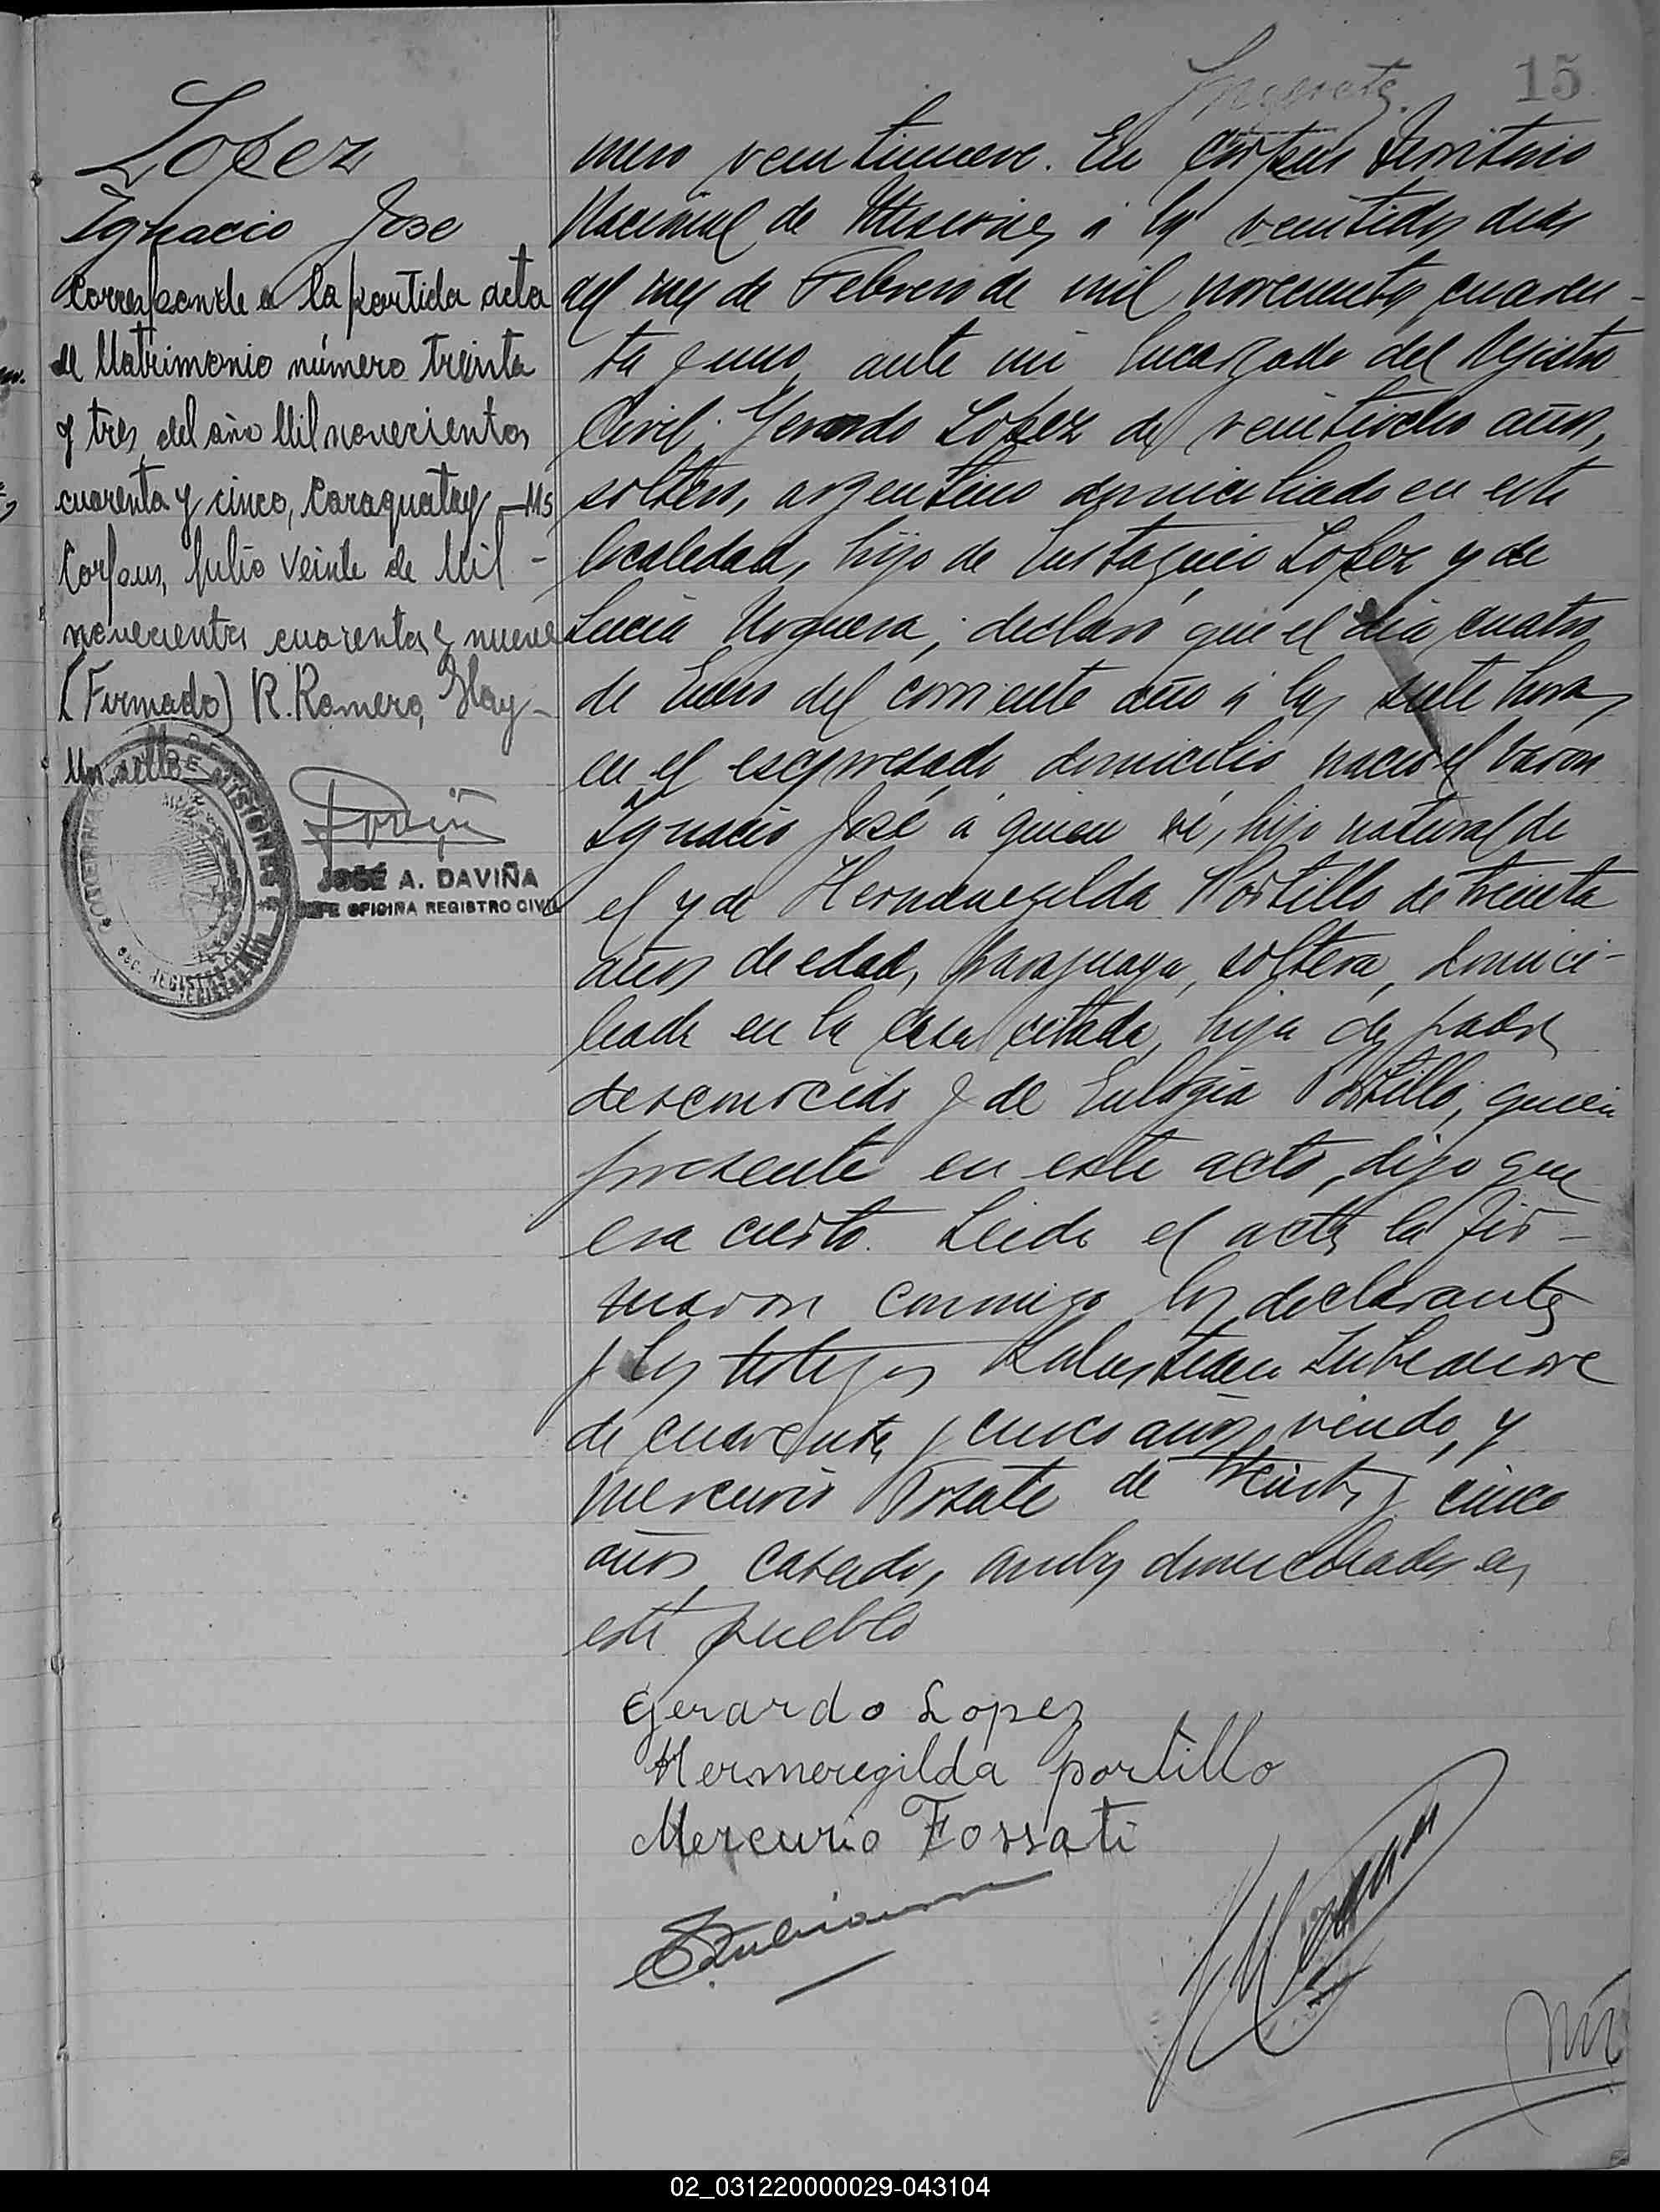 15
Lopez
Ignacio Jose
Corresponde a la partida acta
de Matrimonio número treinta
y tres, del año Mil novecientos
cuarenta y cinco, Caraguatay - Ms
Corpus, Julio veinte de Mil -
novecientos cuarenta y nueve
(Firmado) R. Romero, Hay -
Un sello
JOSÉ A. DAVIÑA
JEFE OFICINA REGISTRO CIVIL
mero veintinueve. En Corpus Territorio
Nacional de Misiones, á los veintidos dias
del mes de Febrero de mil novecientos cuaren-
ta y uno, ante mi Encargado del Registro
Civil; Gerardo Lopez de veintiocho años,
soltero, argentino domiciliado en esta
localidad, hijo de Eustaquio Lopez y de
Lucia Noguera; declaró que el dia cuatro
de Enero del corriente año á las siete horas
en el expresado domicilio nació el varon
Ignacio José á quien ví, hijo natural de
el y de Hermenegilda Portillo de treinta
años de edad, paraguaya, soltera, domici-
liada en la casa citada, hija de padre
desconocido y de Eulogia Portillo, quien
presente en este acto, dijo que
era cierto. Leida el acta la fir-
maron conmigo los declarantes
y los testigos
de cuarenta y cinco años, viudo, y
Mercurio Fosate de treinta y cinco
años, casado, ambos domiciliados en
este pueblo
Gerardo Lopez
Hermeregilda portillo
Mercurio Fossati
02_031220000029-043104